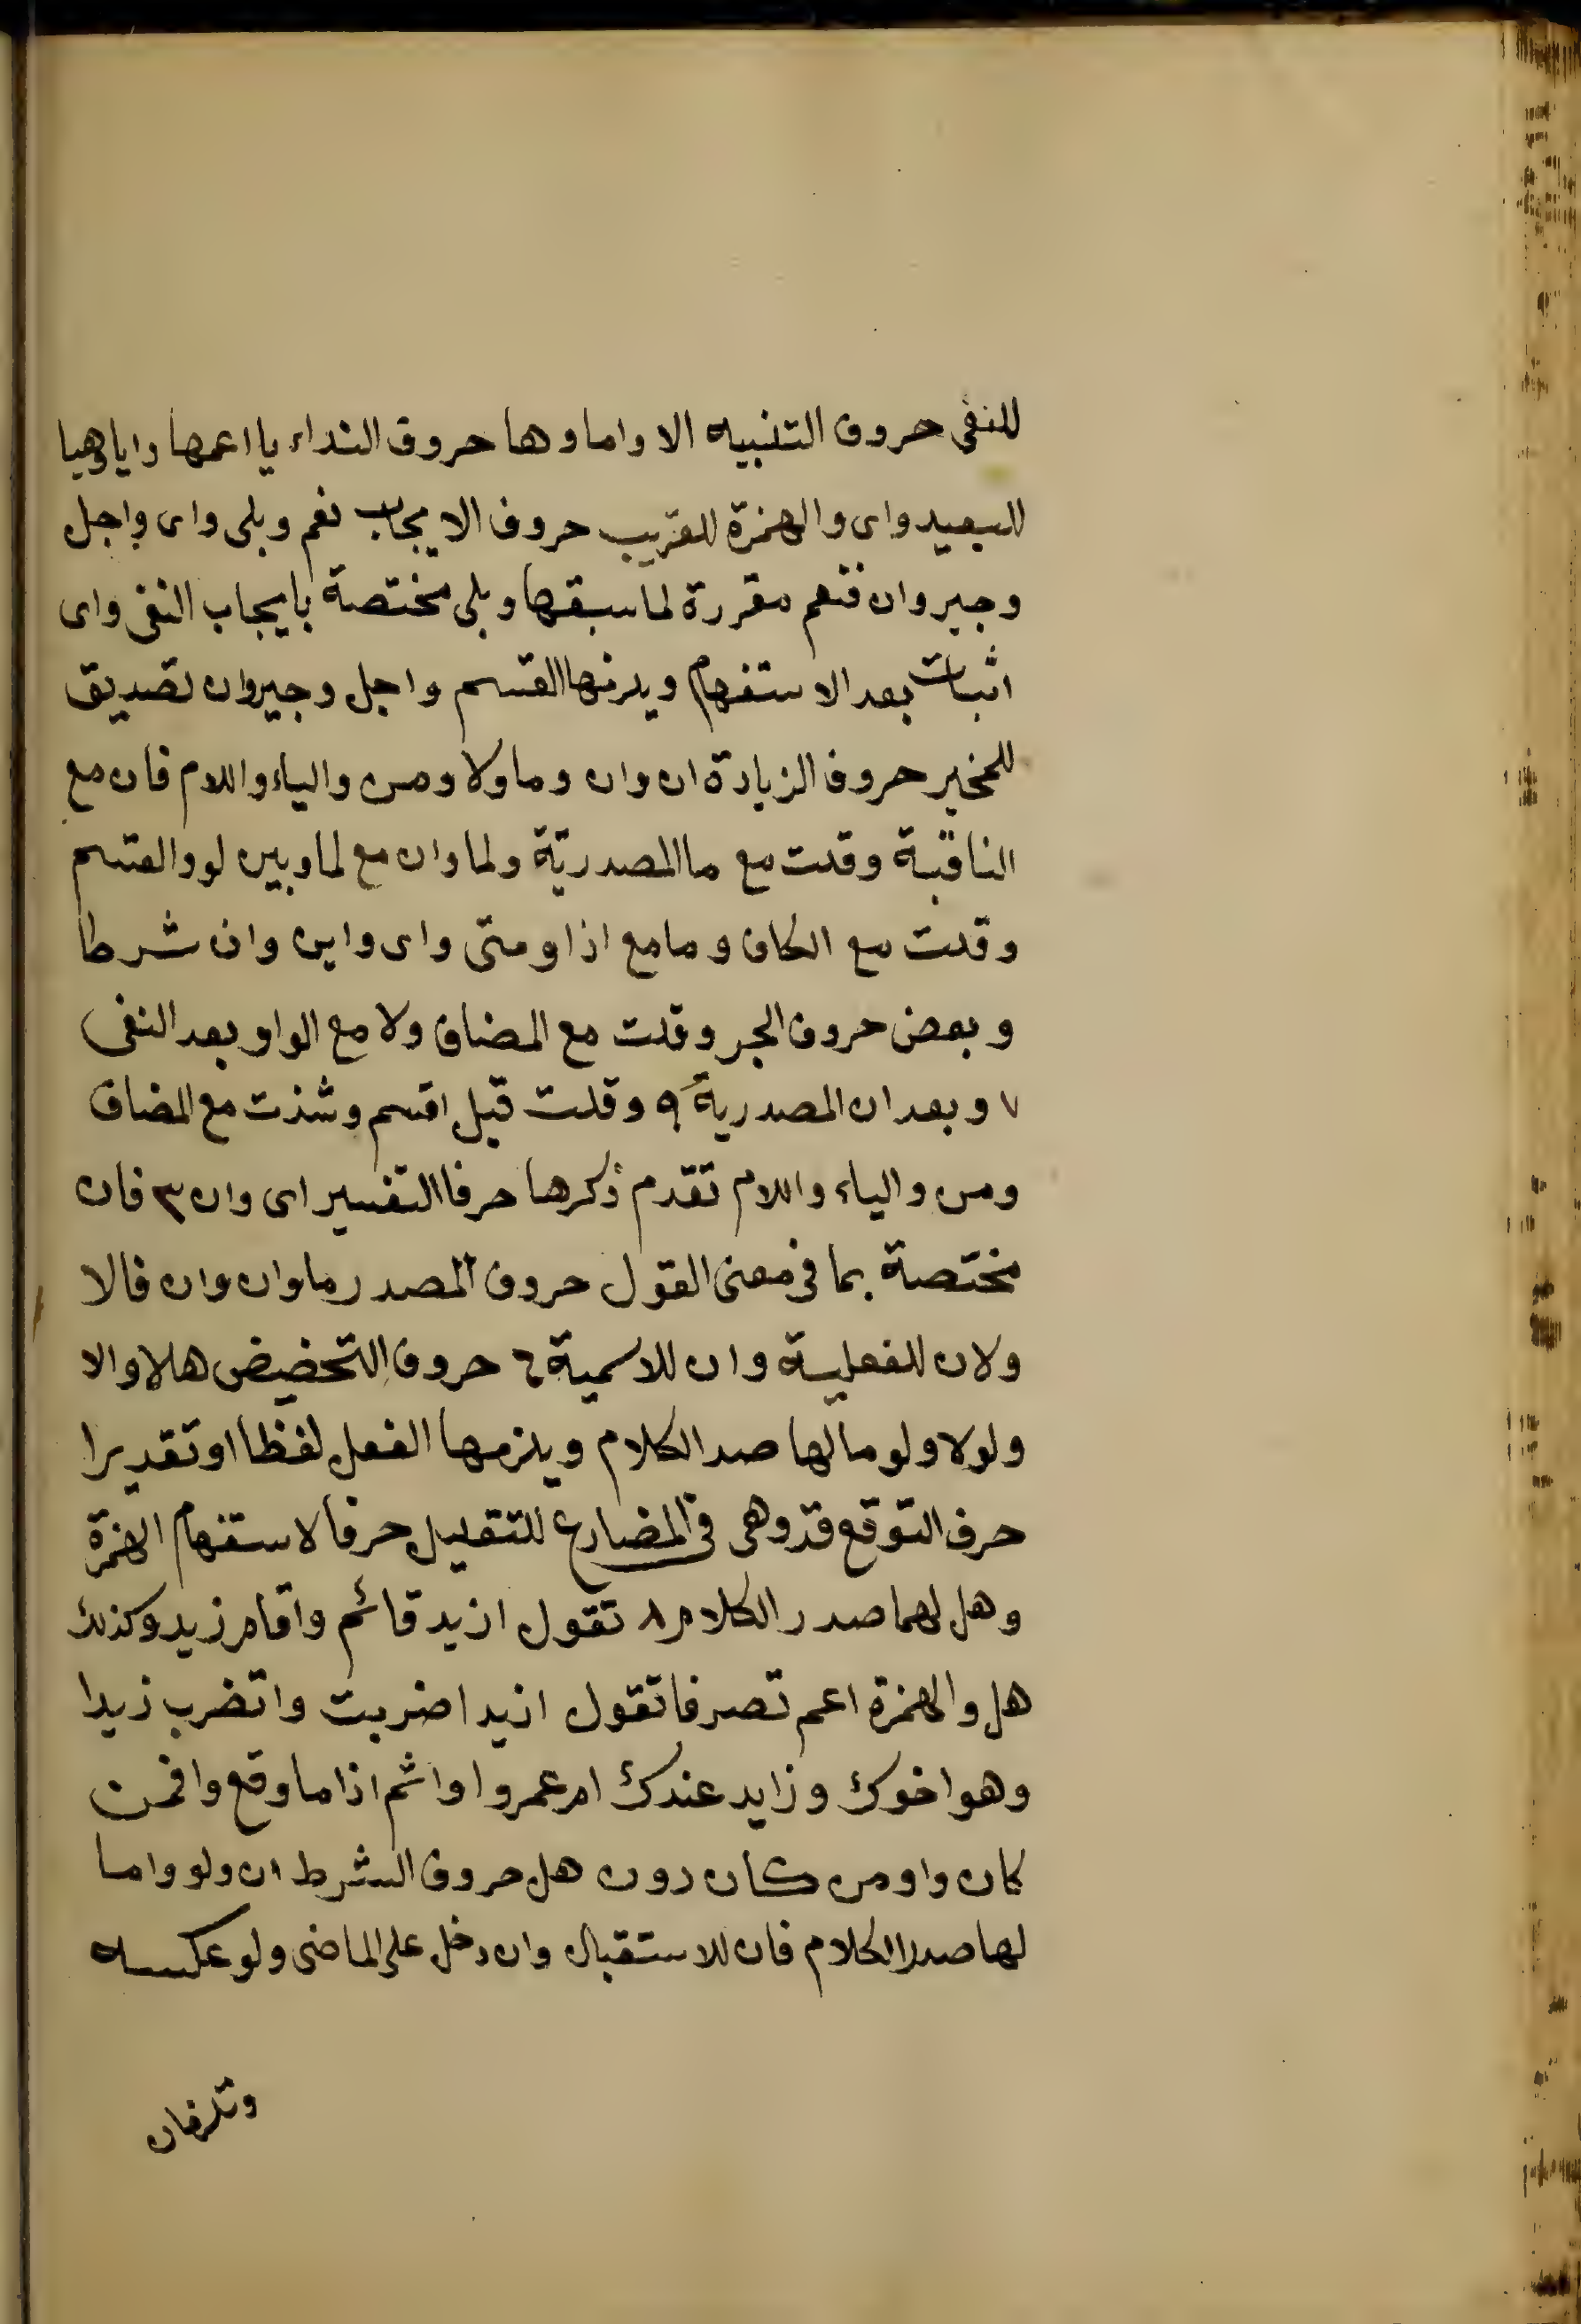 للنفى حروف التنبيه الا واما وها حروف النداء يا اعمها وايا وهيا
للبعيد واى والهمزة للقريب حروف الايجاب نعم وبلى واى واجل
وجير وان فنعم مقررة لما سبقها وبلى مختصة بايجاب النفى واى
اثبات بعد الاستفهام ويلزمها القسم واجل وجير وان تصديق
للمخبر حروف الزيادة ان وان وما ولا ومن والباء واللام فان مع
النافية وقلت مع ما المصدرية ولما وان مع لما وبين لو والقسم
وقلت مع الكاف وما مع اذا ومتى واى واين وان شرطا
وبعض حروف الجر وقلت مع المضاف ولا مع الواو بعد النفى
٧ وبعد ان المصدرية ٩ وقلت قبل اقسم وشذت مع المضاف
ومن والباء واللام تقدم ذكرها حرفا التفسير اى وان ٣ فان
مختصة بما فى معنى القول حروف المصدر ما وان وان فالا
ولان للفعلية وان للاسمية ٤ حروف التحضيض هلا والا
ولولا ولو ما لها صدر الكلام ويلزمها الفعل لفظا او تقديرا
حرف التوقع قد وهى فى المضارع للتقليل حرفا لاستفهام الهمزة
وهل لهما صدر الكلام ٨ تقول ازيد قائم واقام زيد وكذلك
هل والهمزة اعم تصرفا تقول ازيدا ضربت واتضرب زيدا
وهو اخوك وزايد عندك ام عمروا واثم اذا ما وقع وافمن
كان واومن كان دون هل حروف الشرط ان ولو واما
لها صدر الكلام فان للاستقبال وان دخل على الماضى ولو عكسه
وتلزمان